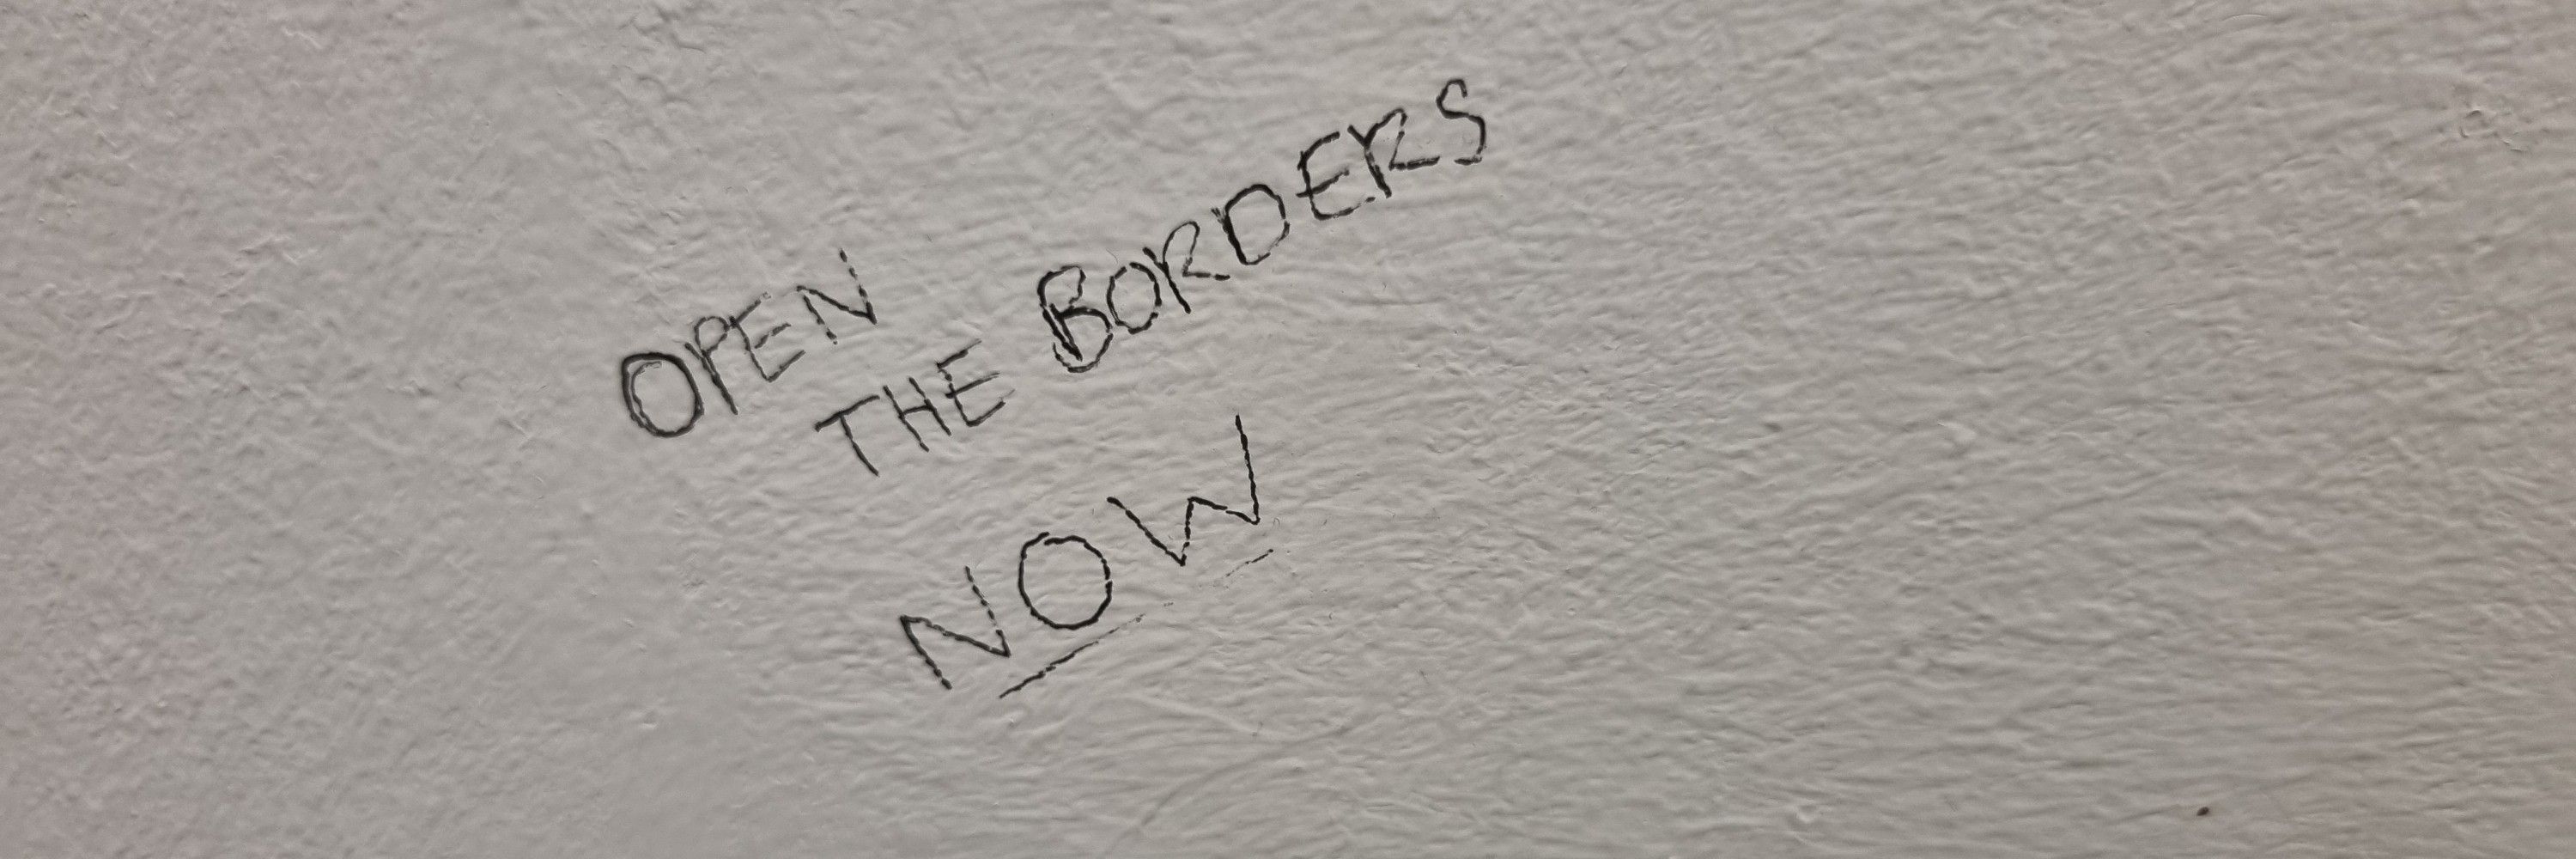 OPEN
THE BORDERS
NOW